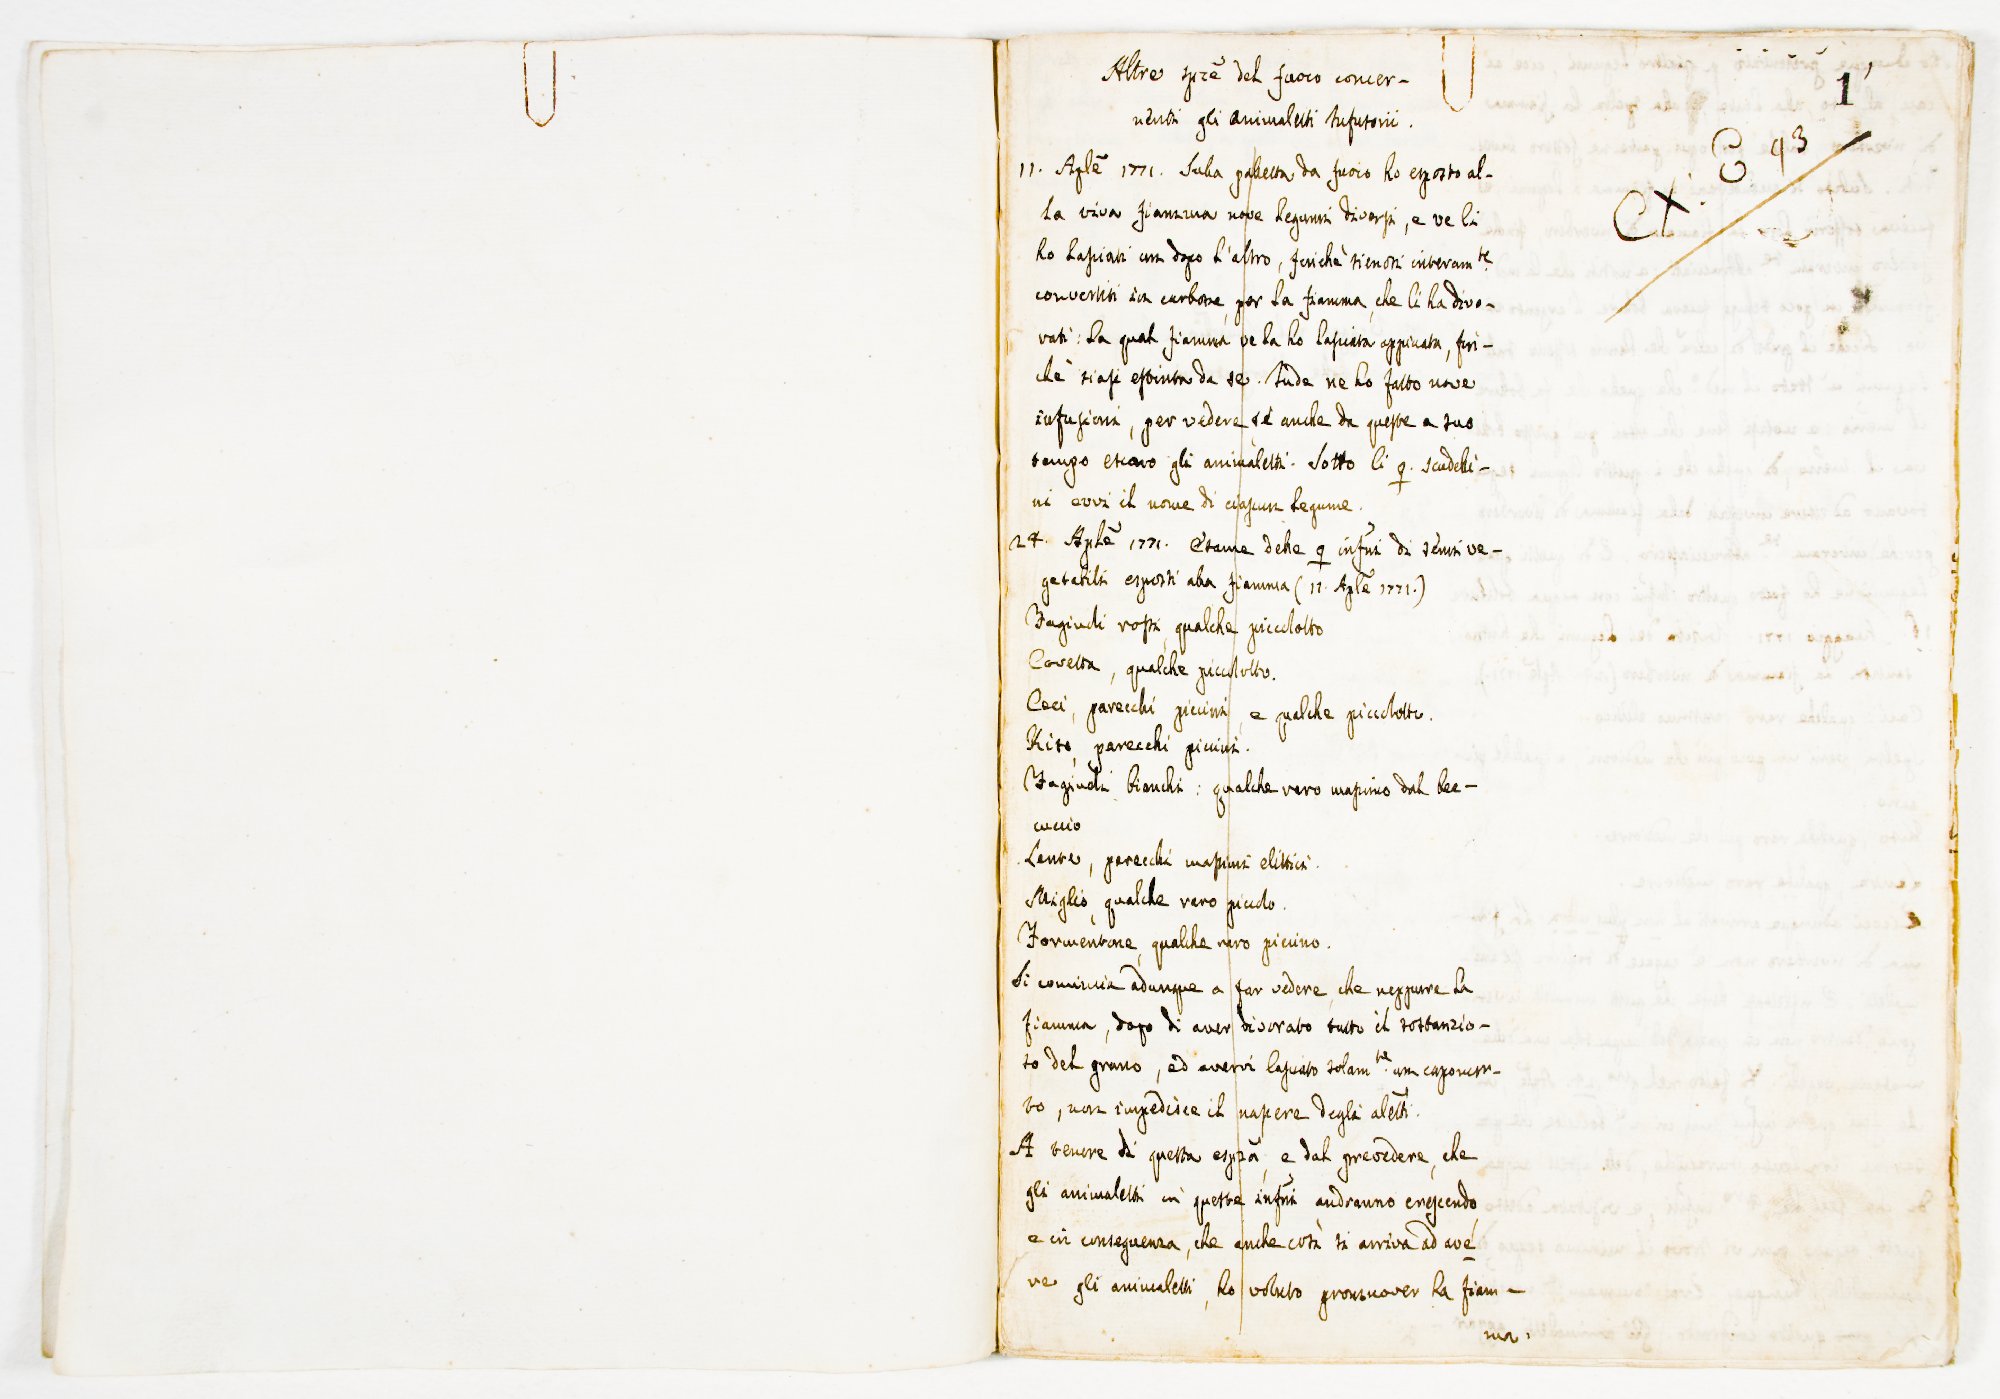 1
C 93
Cx.
Altre spze del fuoco concer-
nenti gli animaletti infusorii.
11. Aple 1771. Sulla paletta da fuoco ho esposto al-
la viva fiamma nove legumi diversi, e ve li
ho lasciati un dopo l'altro, finchè sienosi interamte
convertiti in carbone, per la fiamma, che li ha divo-
rati: la qual fiamma ve la ho lasciata appiccata, fin-
chè siasi estinta da se. Inde ne ho fatto nove
infusioni, per vedere se anche da queste a suo
tempo escano gli animaletti. Sotto li 9. scudelli-
ni evvi il nome di ciascun legume.
24. Aple 1771. Esame delle 9 infni di semi ve-
getabili esposti alla fiamma (11. Aple 1771.)
Fagiuoli rossi, qualche piccolotto
Cavetta, qualche piccolotto.
Ceci, parecchi piccini, e qualche piccolotto.
Riso, parecchi piccini.
Fagiuoli bianchi: qualche raro massimo dal bec-
cuccio
Lente, parecchi massimi elittici.
Miglio, qualche raro piccolo.
Formentone, qualche raro piccino.
Si comincia adunque a far vedere, che neppure la
fiamma, dopo di aver divorato tutto il sostanzio-
so del grano, ed avervi lasciato solamte un capomor-
to, non impedisce il nascere degli aletti.
A tenore di questa espza, e dal prevedere, che
gli animaletti in queste infni andranno crescendo,
e in conseguenza, che anche così si arriva ad ave
re gli animaletti, ho voluto promuover la fiam-
ma.